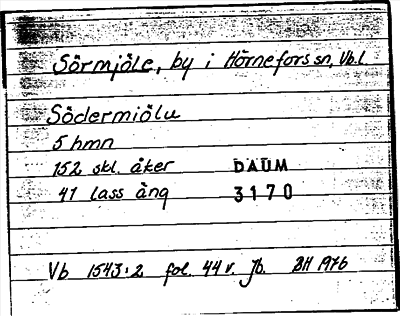 Sörmjöle, by i Hörnefors sn, Vb.l
Södermiölu
5 hmn
152 skl. åker DAUM
41 lass äng 3170
Vb 1543:2 fol. 44 v. Jb. BH 1976